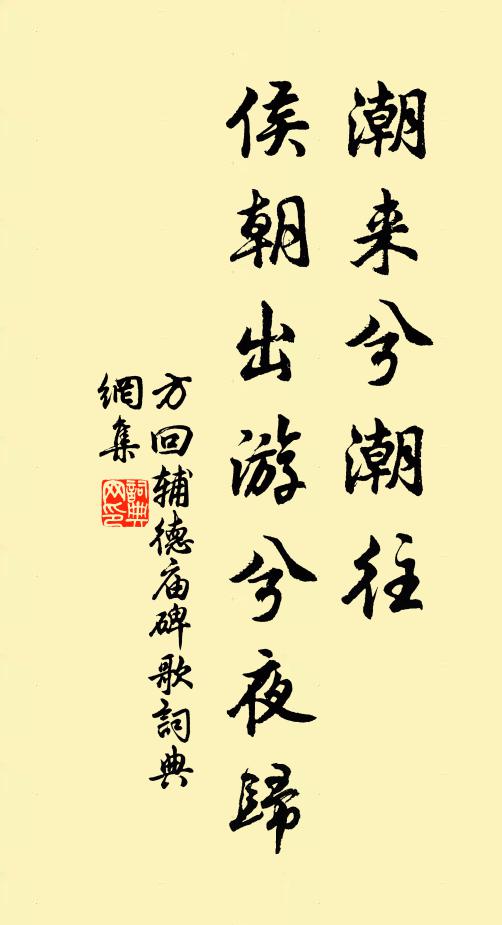 潮来兮潮往
侯朝出游兮夜歸
方回辅德庙碑歌詞典
網集
詞典
网印